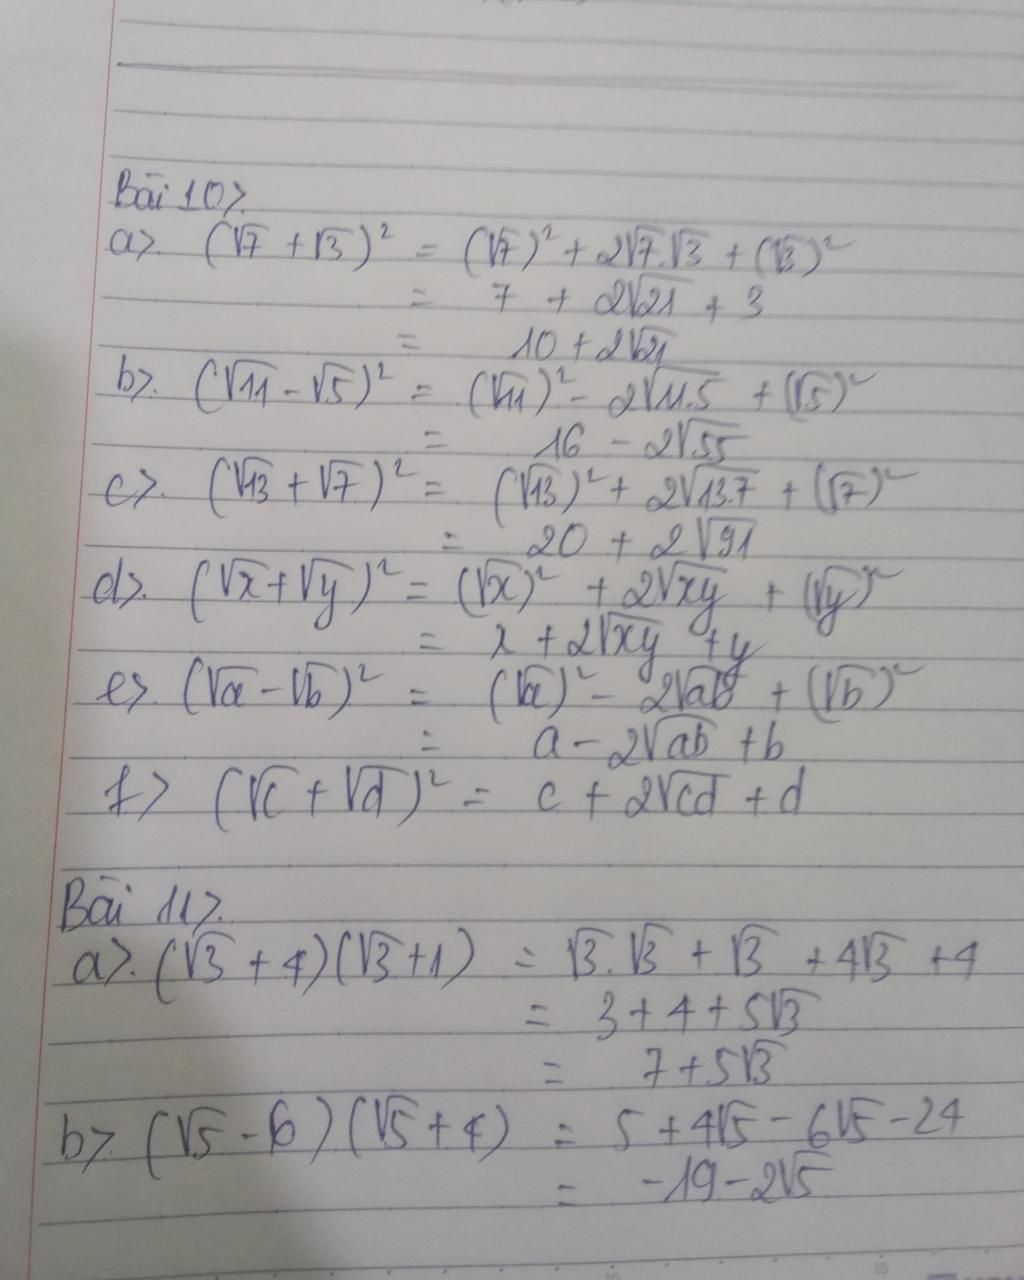 Bài 10>.
a>. (√7 + √3)² = (√7)² + 2√7.√3 + (√3)²
= 7 + 2√21 + 3
= 10 + 2√21
b>. (√11 - √5)² = (√11)² - 2√11.5 + (√5)²
= 16 - 2√55
c>. (√13 + √7)² = (√13)² + 2√13.7 + (√7)²
= 20 + 2√91
d>. (√x + √y)² = (√x)² + 2√xy + (√y)²
= x + 2√xy + y
e>. (√a - √b)² = (√a)² - 2√ab + (√b)²
= a - 2√ab + b
f> (√c + √d)² = c + 2√cd + d
Bài 11>.
a>. (√3 + 4)(√3 + 1) = √3.√3 + √3 + 4√3 + 4
= 3 + 4 + 5√3
= 7 + 5√3
b>. (√5 - 6)(√5 + 4) = 5 + 4√5 - 6√5 - 24
= -19 - 2√5